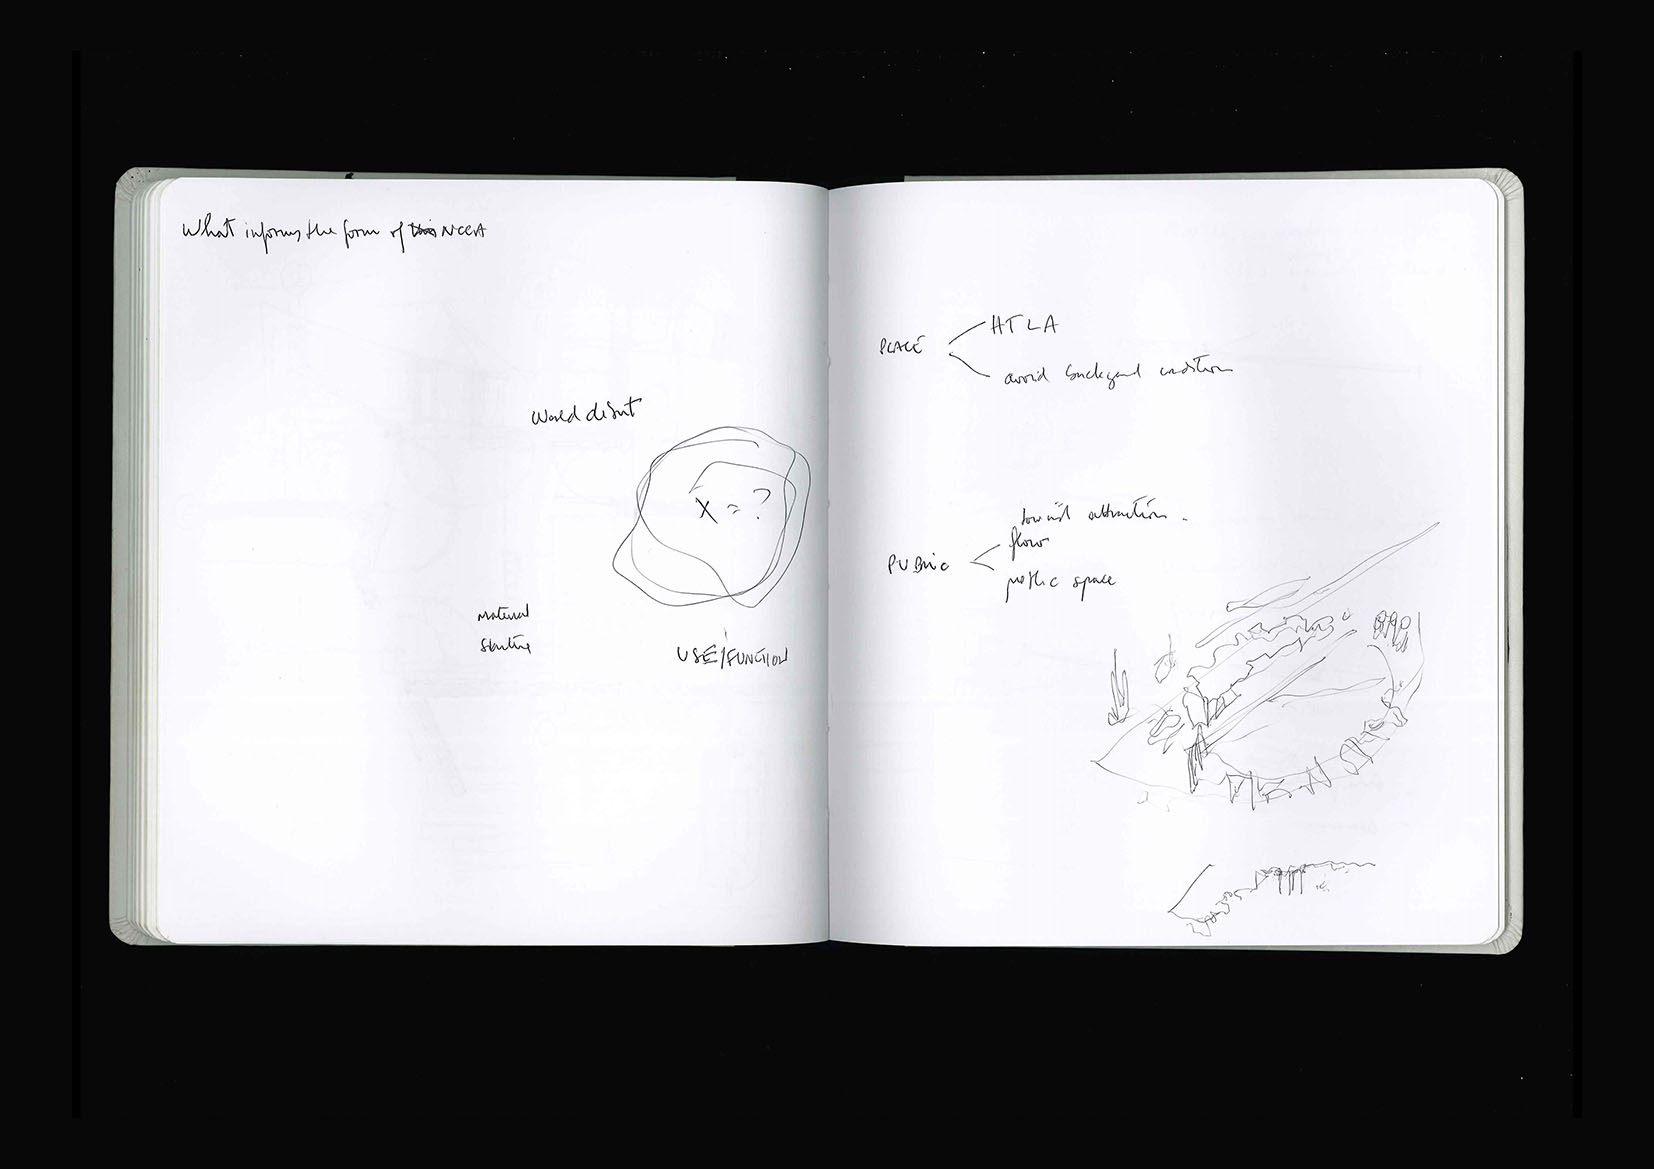 What informs the form of NCCA
World debut
X = ?
Material
USE/FUNCTION
PLACE
HTLA
avoid backyard condition
PUBLIC
tourist attraction.
flow
public space